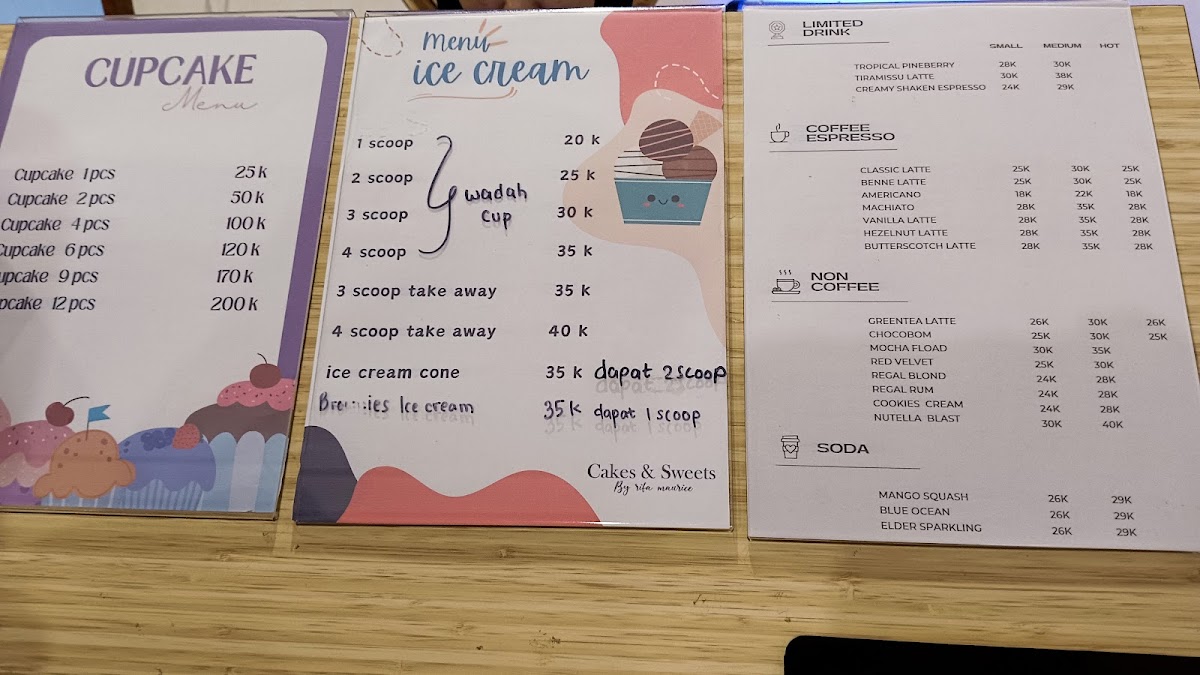 CUPCAKE
Menu
Cupcake 1 pcs 25 k
Cupcake 2 pcs 50 k
Cupcake 4 pcs 100 k
Cupcake 6 pcs 120 k
upcake 9 pcs 170 k
pcake 12 pcs 200 k
Menu
ice cream
1 scoop 20 k
2 scoop 25 k
wadah
cup
3 scoop 30 k
4 scoop 35 k
3 scoop take away 35 k
4 scoop take away 40 k
ice cream cone 35 k dapat 2 scoop
Ice cream 35 k dapat 1 scoop
Cakes & Sweets
By rifa maurice
LIMITED
DRINK
SMALL MEDIUM HOT
TROPICAL PINEBERRY 28K 30K
TIRAMISSU LATTE 30K 38K
CREAMY SHAKEN ESPRESSO 24K 29K
COFFEE
ESPRESSO
CLASSIC LATTE 25K 30K 25K
BENNE LATTE 25K 30K 25K
AMERICANO 18K 22K 18K
MACHIATO 28K 35K 28K
VANILLA LATTE 28K 35K 28K
HEZELNUT LATTE 28K 35K 28K
BUTTERSCOTCH LATTE 28K 35K 28K
NON
COFFEE
GREENTEA LATTE 26K 30K 26K
CHOCOBOM 25K 30K 25K
MOCHA FLOAD 30K 35K
RED VELVET 25K 30K
REGAL BLOND 24K 28K
REGAL RUM 24K 28K
COOKIES CREAM 24K 28K
NUTELLA BLAST 30K 40K
SODA
MANGO SQUASH 26K 29K
BLUE OCEAN 26K 29K
ELDER SPARKLING 26K 29K